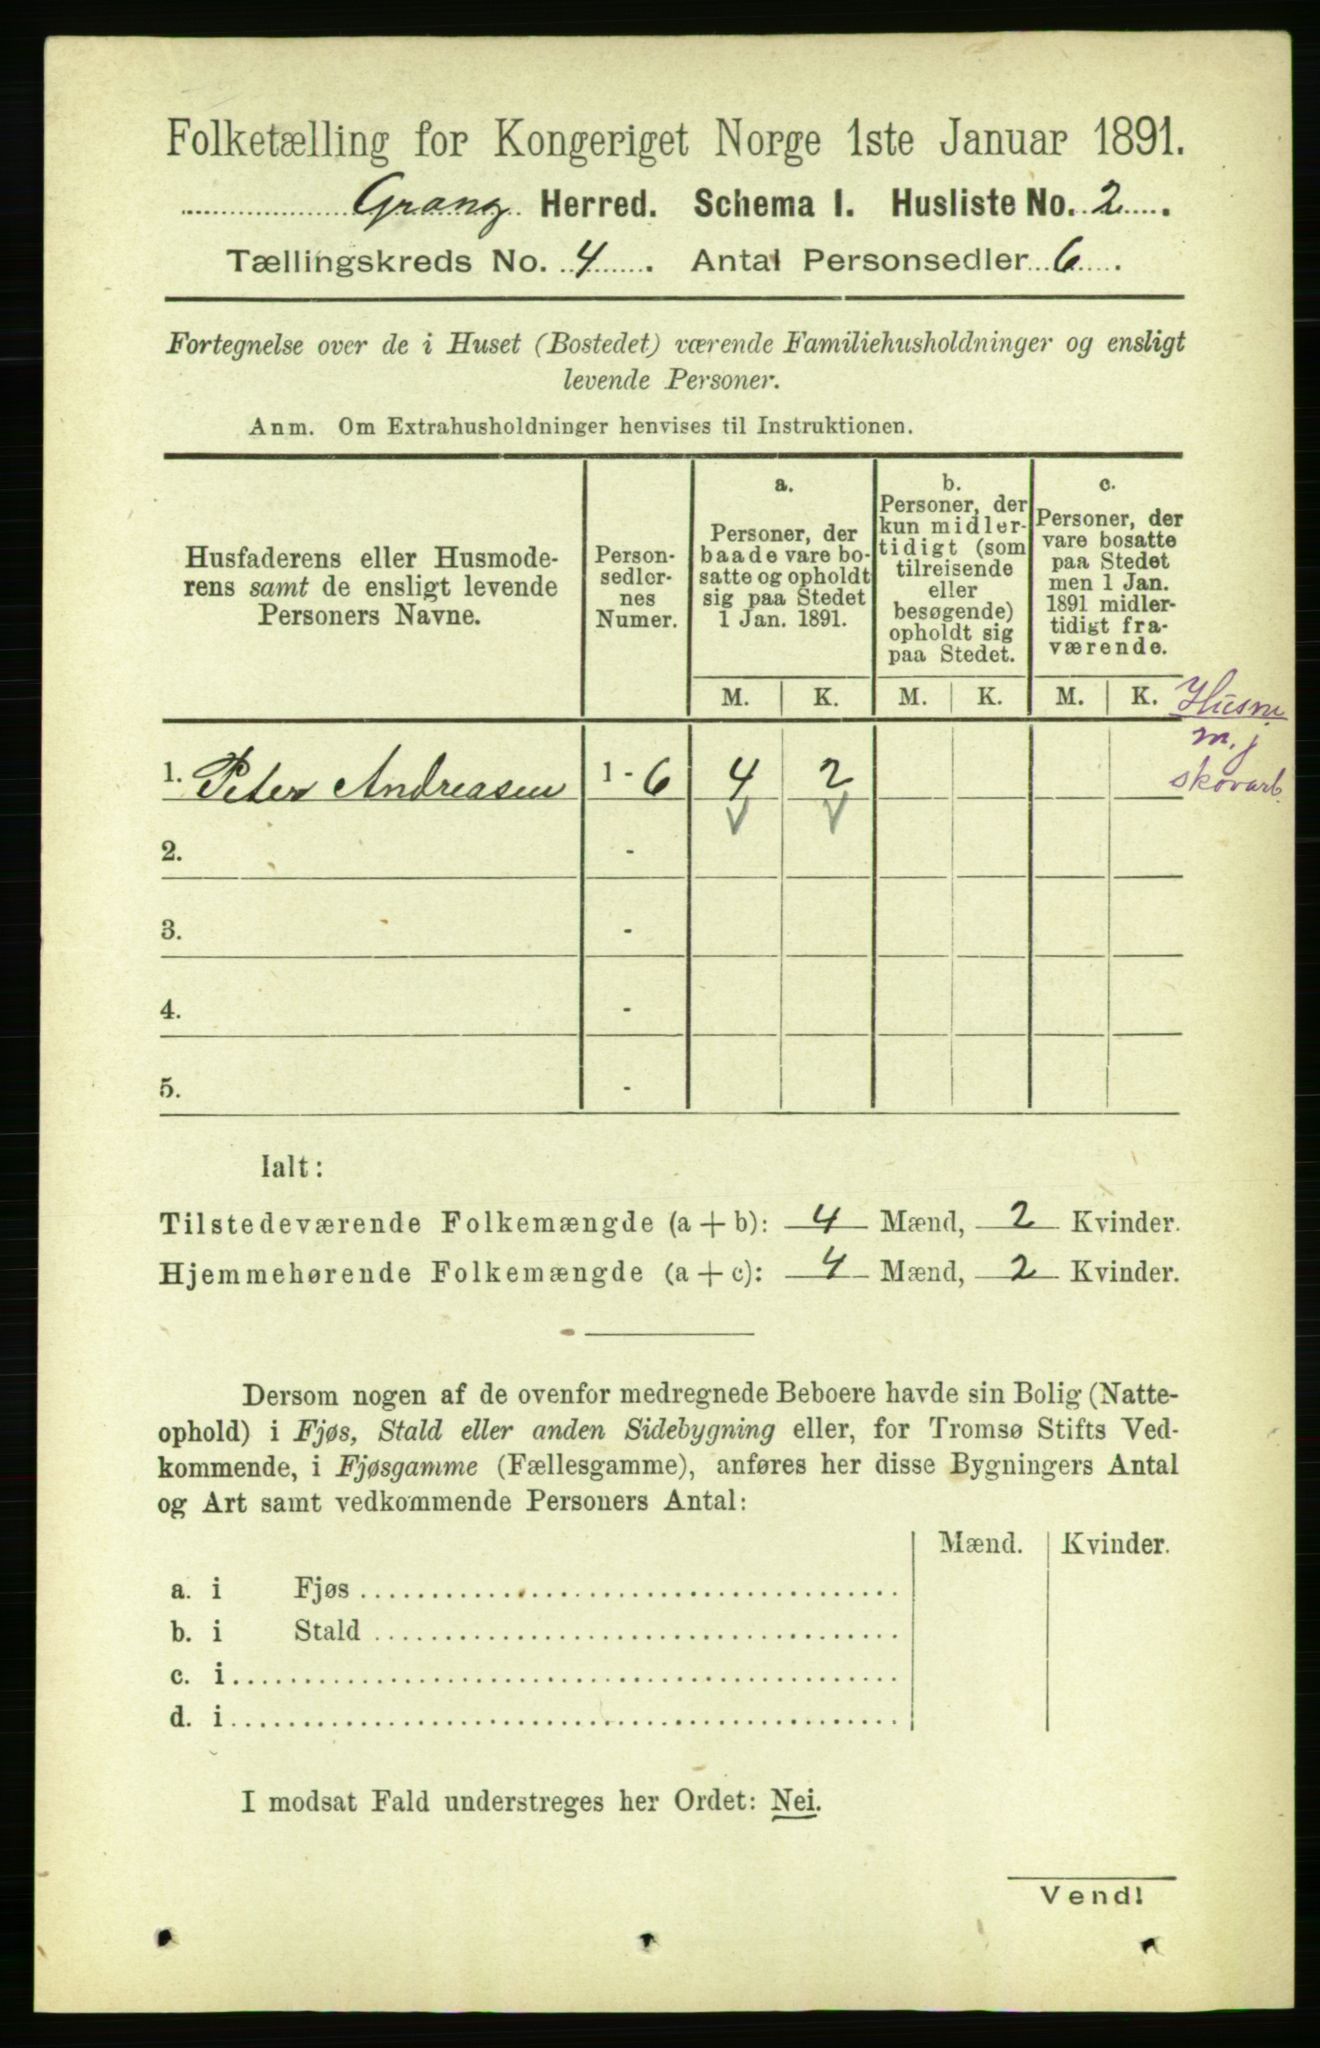 Folketælling for Kongeriget Norge 1ste Januar 1891.
Grang Herred. Schema I. Husliste No. 2.
Tællingskreds No. 4. Antal Personsedler 6.
Fortegnelse over de i Huset (Bostedet) værende Familiehusholdninger og ensligt
levende Personer.
Anm. Om Extrahusholdninger henvises til Instruktionen.
Husfaderens eller Husmode-
rens samt de ensligt levende
Personers Navne.
Person-
sedler-
nes
Numer.
a.
Personer, der
baade vare bo-
satte og opholdt
sig paa Stedet
1 Jan. 1891.
b.
Personer, der
kun midler-
tidigt (som
tilreisende
eller
besøgende)
opholdt sig
paa Stedet.
c.
Personer, der
vare bosatte
paa Stedet
men 1 Jan.
1891 midler-
tidigt fra-
værende.
M. K. M. K. M. K.
Husm
m. j
skovarb.
1. Peter Andreasen 1 - 6 4 2
2. -
3. -
4. -
5. -
Ialt:
Tilstedeværende Folkemængde (a + b): 4 Mænd, 2 Kvinder.
Hjemmehørende Folkemængde (a + c): 4 Mænd, 2 Kvinder.
Dersom nogen af de ovenfor medregnede Beboere havde sin Bolig (Natte-
ophold) i Fjøs, Stald eller anden Sidebygning eller, for Tromsø Stifts Ved-
kommende, i Fjøsgamme (Fællesgamme), anføres her disse Bygningers Antal
og Art samt vedkommende Personers Antal:
Mænd. Kvinder.
a. i Fjøs
b. i Stald
c. i
d. i
I modsat Fald understreges her Ordet: Nei.
Vend!